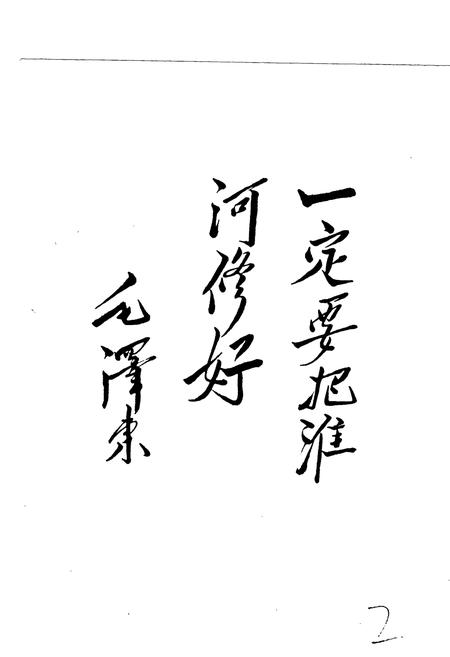 一定要把淮
河修好
毛澤东
2